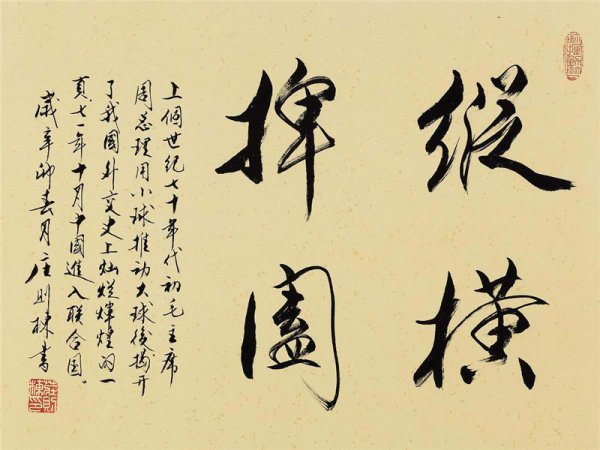 縱橫
捭闔
上個世紀七十年代初毛主席
周总理用小球推动大球後揭开
了我國外交史上灿烂輝煌的一
頁七一年十月中國進入联合国。
歲辛卯春月庄则棟書
莊則棟印